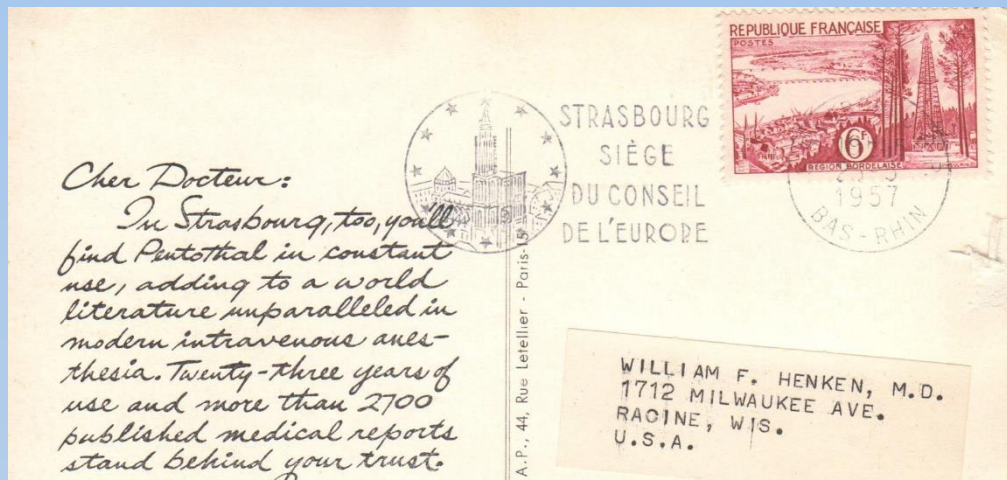 Cher Docteur:
In Strasbourg, too, you'll
find Pentothal in constant
use, adding to a world
literature unparalleled in
modern intravenous anes-
thesia. Twenty-three years of
use and more than 2700
published medical reports
stand behind your trust.
STRASBOURG
SIÈGE
DU CONSEIL
DE L'EUROPE
REPUBLIQUE FRANÇAISE
POSTES
6F
REGION BORDELAISE
1957
BAS-RHIN
A.P., 44, Rue Letellier - Paris-15
WILLIAM F. HENKEN, M.D.
1712 MILWAUKEE AVE.
RACINE, WIS.
U.S.A.